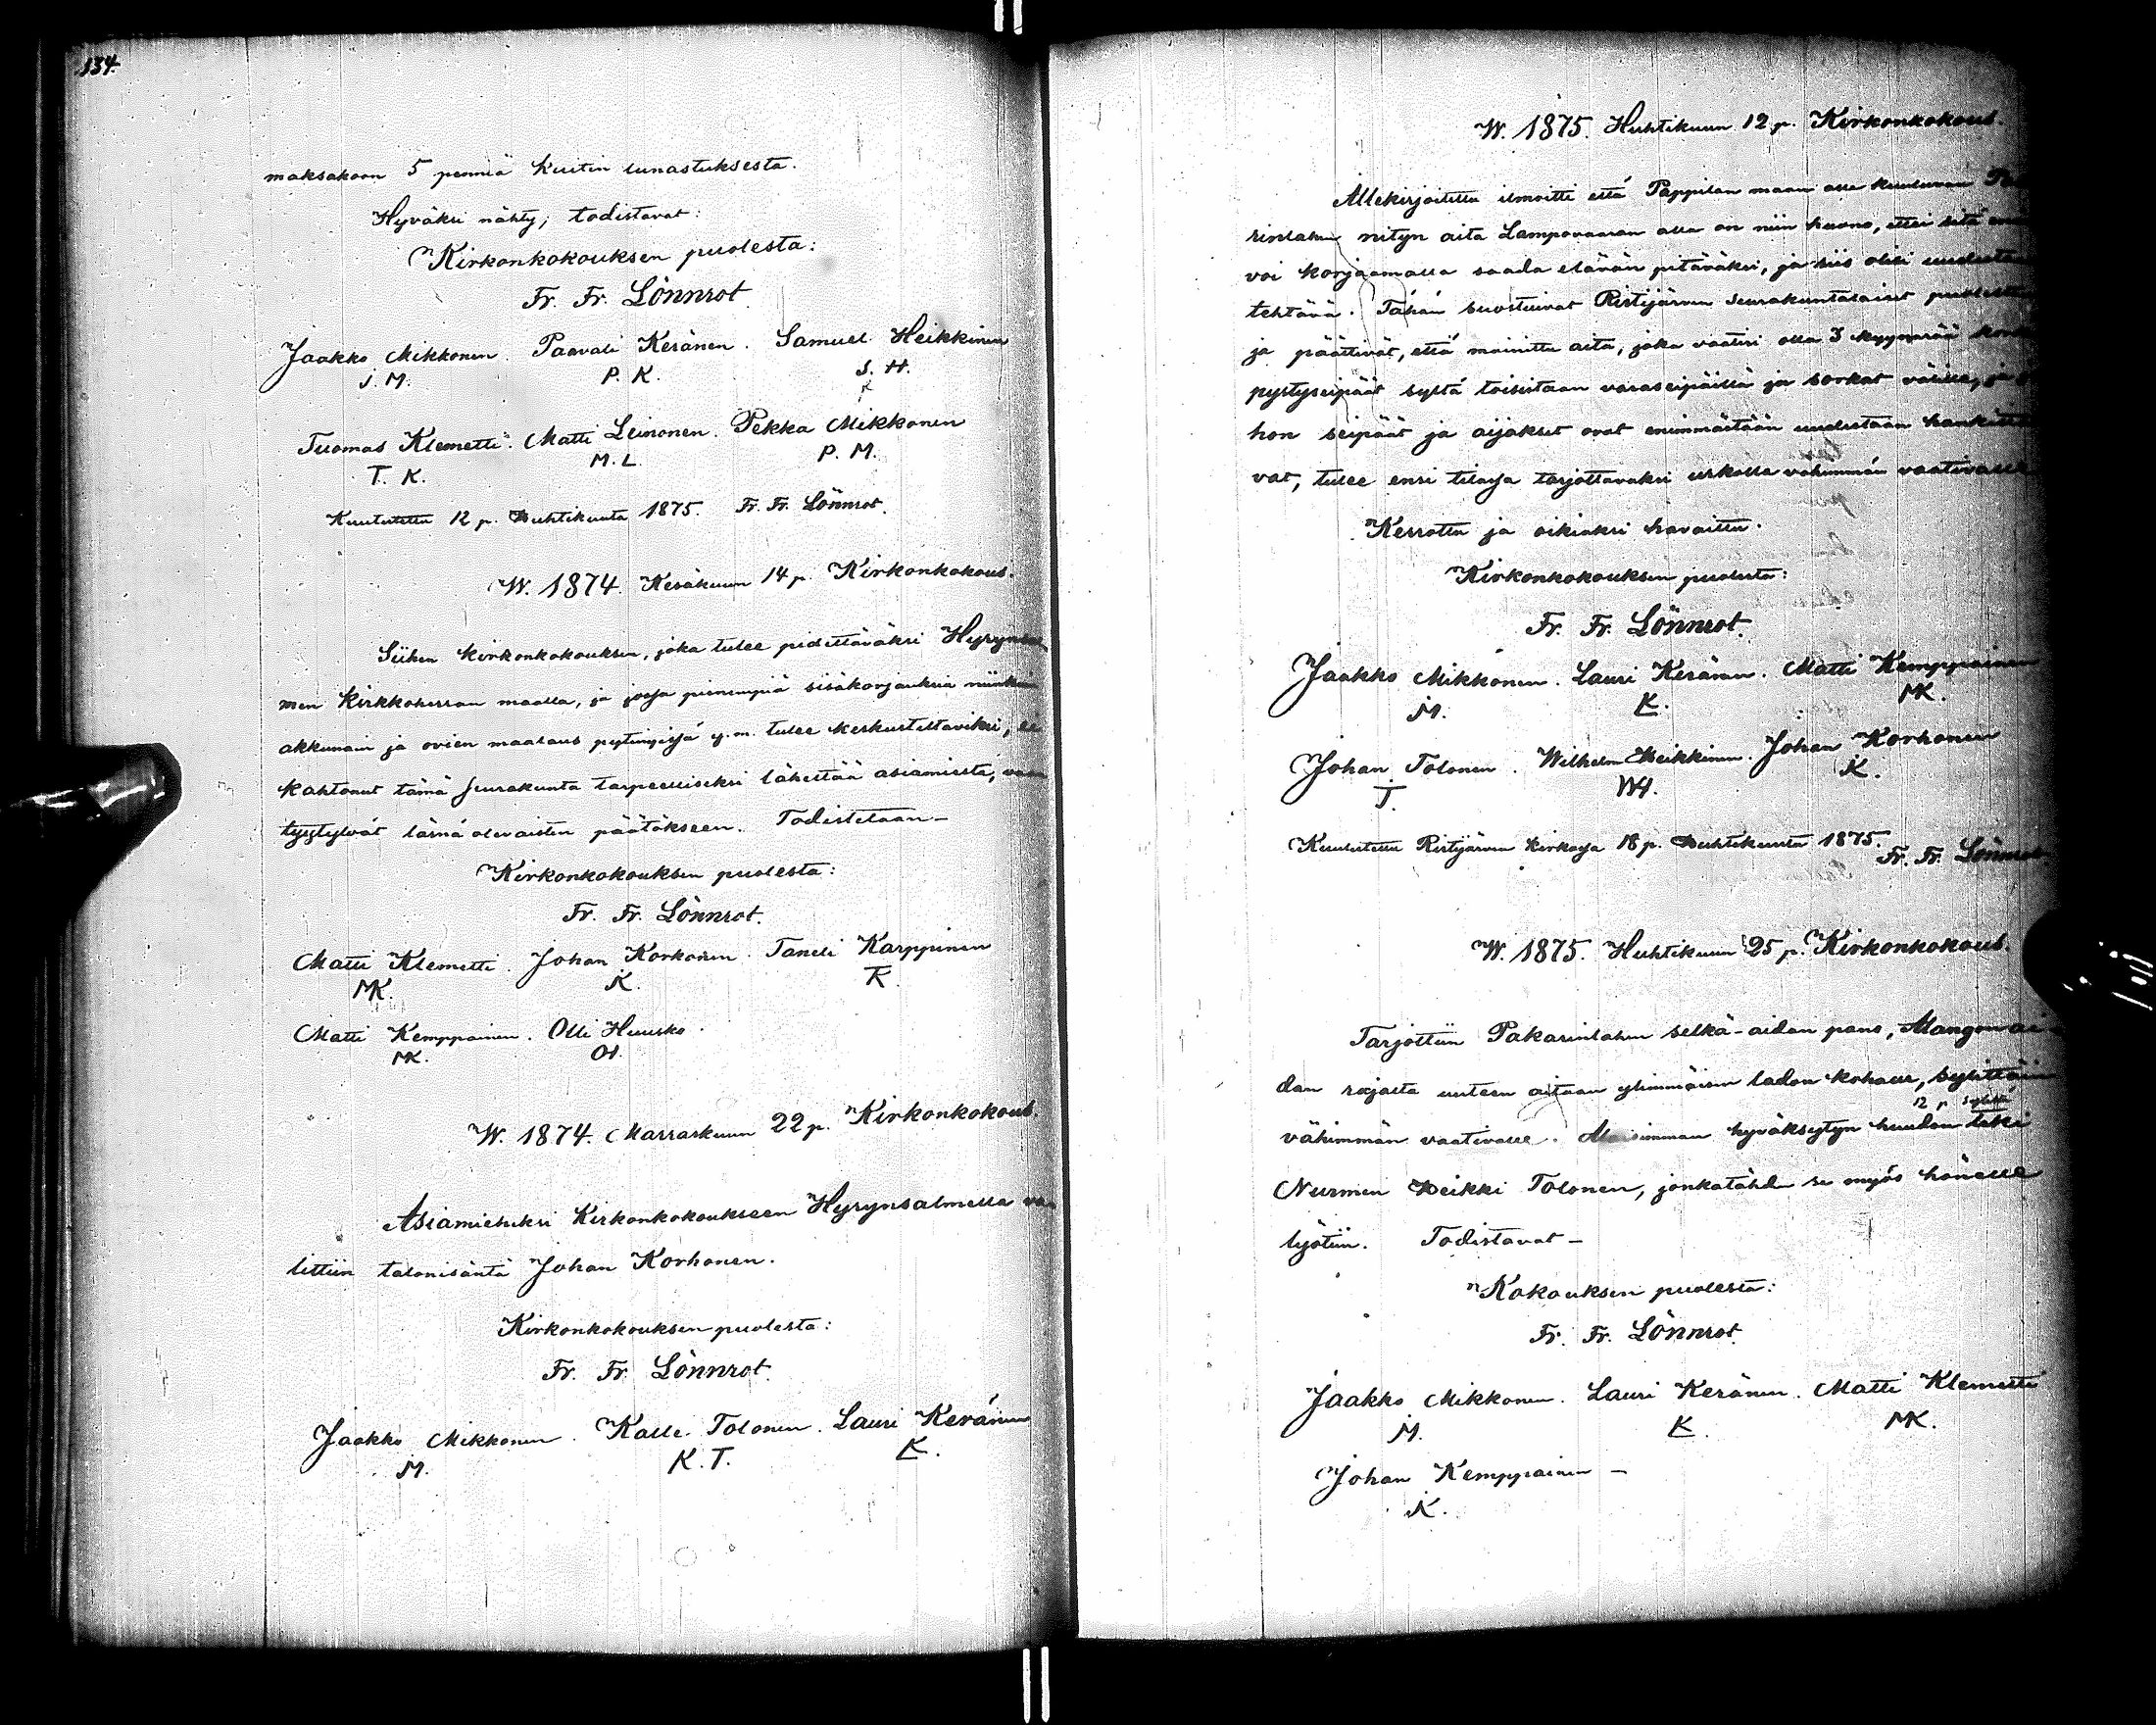 134.
maksakoon 5 penniä kuitin lunastuksesta.
Hyväksi nähty, todistavat:
Kirkonkokouksen puolesta:
Fr. Fr. Lönnrot.
Jaakko Mikkonen. Paavali Keränen. Samuel Heikkinen
J. M. P. K. S. H.
Tuomas Klemetti. Matti Leinonen. Pekka Mikkonen
T. K. M. L. P. M.
Kuulutettu 12 p. Huhtikuuta 1875. Fr. Fr. Lönnrot.
W. 1874. Kesäkuun 14 p. Kirkonkokous.
Siihen kirkonkokouksen, joka tulee pidettäväksi Hyrynsal
men kirkkoherran maalla, ja jossa pienempiä sisäkorjauksia niinkuin
akkunain ja ovien maalaus pytingissä y.m. tulee keskusteltaviksi, ei
kahtonut tämä seurakunta tarpeelliseksi lähettää asiamiestä, vaan
tyytyivät läsnä olevaisten päätökseen. Todistetaan –
Kirkonkokouksen puolesta:
Fr. Fr. Lönnrot.
Matti Klemetti. Johan Korhonen. Taneli Karppinen
MK. JK. TK.
Matti Kemppainen. Olli Huusko.
MK. OH.
W. 1874. Marraskuun 22 p. Kirkonkokous.
Asiamieheksi Kirkonkokoukseen Hyrynsalmella va
littiin talonisäntä Johan Korhonen.
Kirkonkokouksen puolesta:
Fr. Fr. Lönnrot.
Jaakko Mikkonen. Kalle Tolonen. Lauri Keränen
JM. K. T. LK.
W. 1875. Huhtikuun 12 p. Kirkonkokous.
Allekirjoitettu ilmoitti että Pappilan maan alle kuuluvan
rinlahen nityn aita Lampovaaran alla on niin huono, ettei sitä
voi korjaamalla saada elävän pitäväksi, ja siis olisi
tehtävä. Tähän suostuivat Ristijärven seurakuntalaiset
ja päättivät, että mainittu aita, joka vaatisi olla 3 kyynärää
pystyseipäät syltä toisistaan varaseipäillä ja sorkat välillä,
hon seipäät ja aijakset ovat enimmästään uudestaan
vat, tulee ensi tilassa tarjottavaksi urkolla vähimmän vaativalle
Kerrottu ja oikiaksi havaittu.
Kirkonkokouksen puolesta:
Fr. Fr. Lönnrot.
Jaakko Mikkonen. Lauri Keränen. Matti Kemppainen
JM. LK. MK.
Johan Tolonen. Wilhelm Heikkinen. Johan Korhonen
JT. WH. JK.
Kuulutettu Ristijärven kirkossa 18 p. Huhtikuuta 1875.
Fr. Fr. Lönnrot.
W. 1875. Huhtikuun 25 p. Kirkonkokous.
Tarjottiin Pakarinlahen selkä-aidan pano, Alangon ai
dan rajasta uuteen aitaan ylimmäisen ladon kohalle, sylittäin
12 p syleltä
vähimmän vaativalle. hyväksytyn huudon teki
Nurmen Heikki Tolonen, jonkatähden se myös hänelle
lyötiin. Todistavat –
Kokouksen puolesta:
Fr. Fr. Lönnrot.
Jaakko Mikkonen. Lauri Keränen. Matti Klemetti
JM. LK. MK.
Johan Kemppainen –
JK.